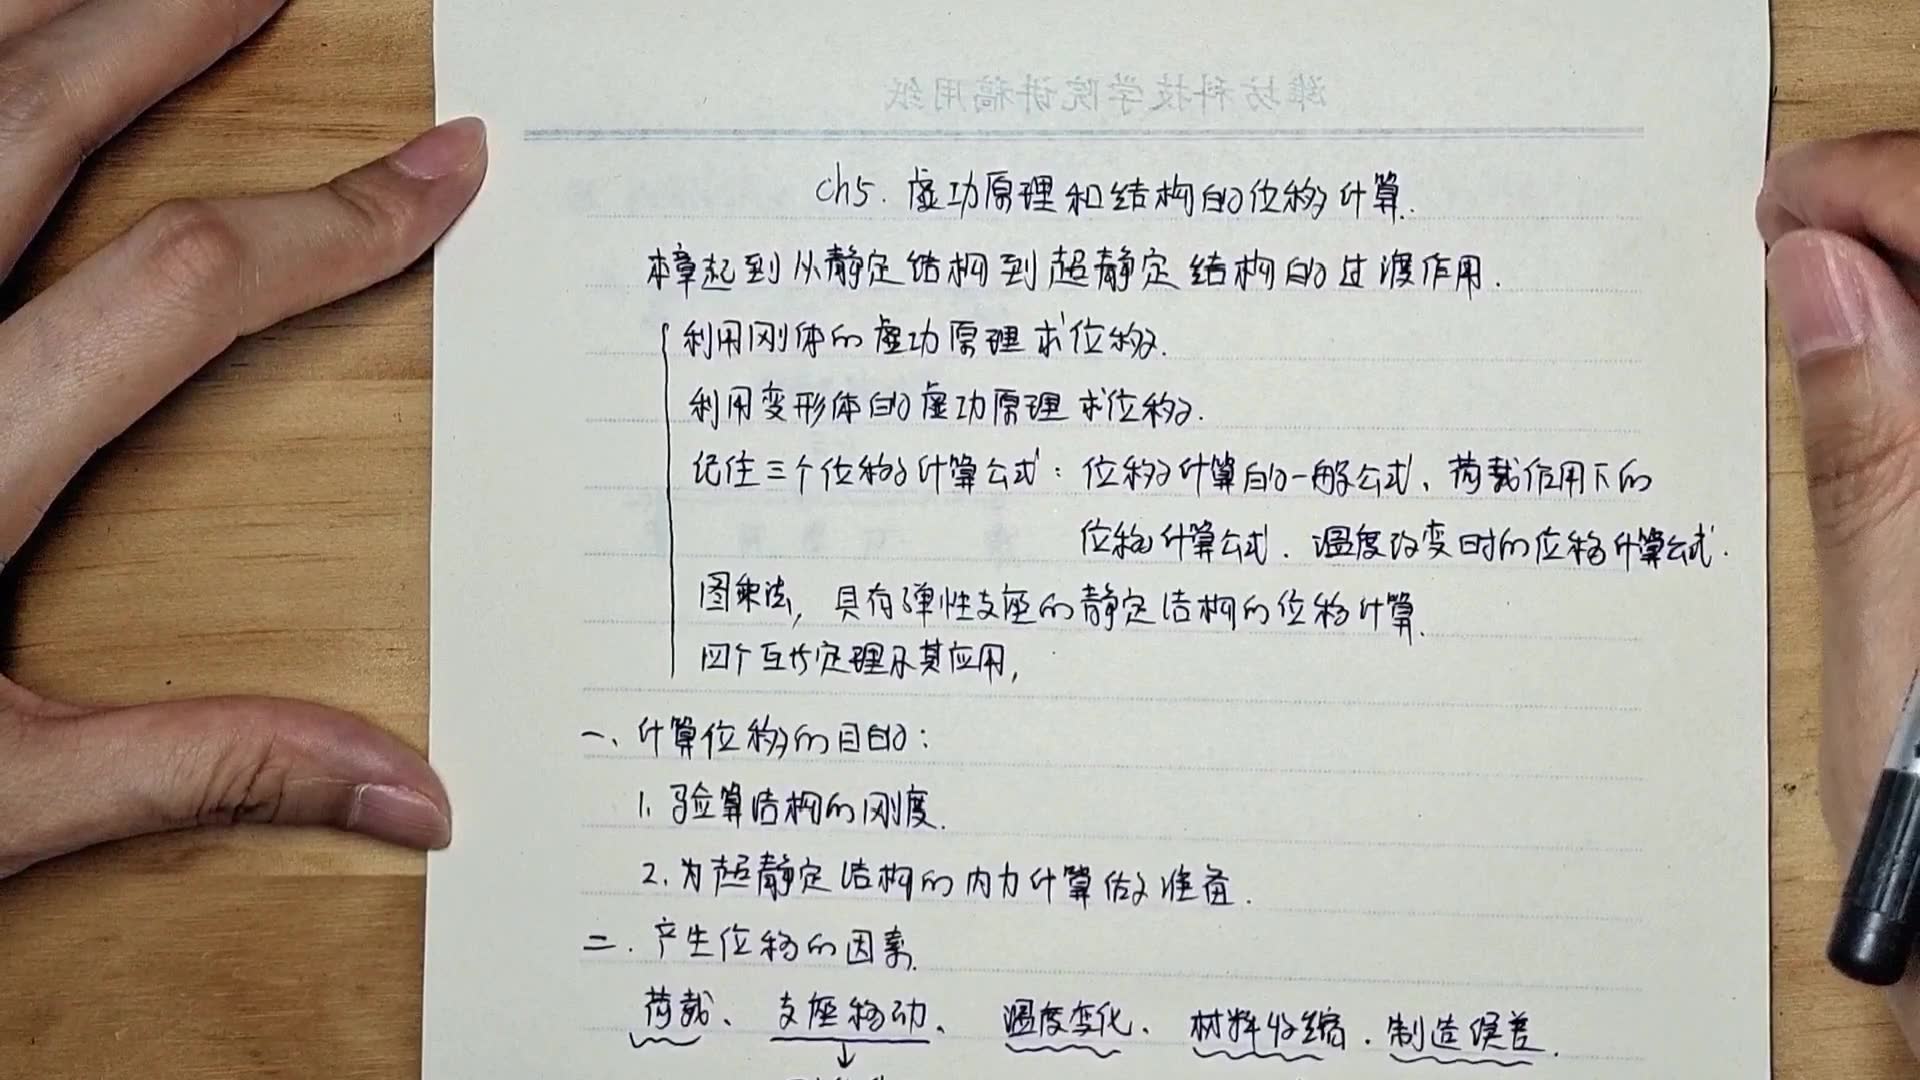 潍坊科技学院讲稿用纸
Ch5. 虚功原理和结构的位移计算.
本章起到从静定结构到超静定结构的过渡作用.
利用刚体的虚功原理求位移.
利用变形体的虚功原理求位移.
记住三个位移计算公式: 位移计算的一般公式、荷载作用下的
位移计算公式. 温度改变时的位移计算公式.
图乘法, 具有弹性支座的静定结构的位移计算.
四个互等定理及其应用,
一、计算位移的目的:
1. 验算结构的刚度.
2. 为超静定结构的内力计算做准备.
二. 产生位移的因素.
荷载、支座移动、温度变化、材料收缩. 制造误差.